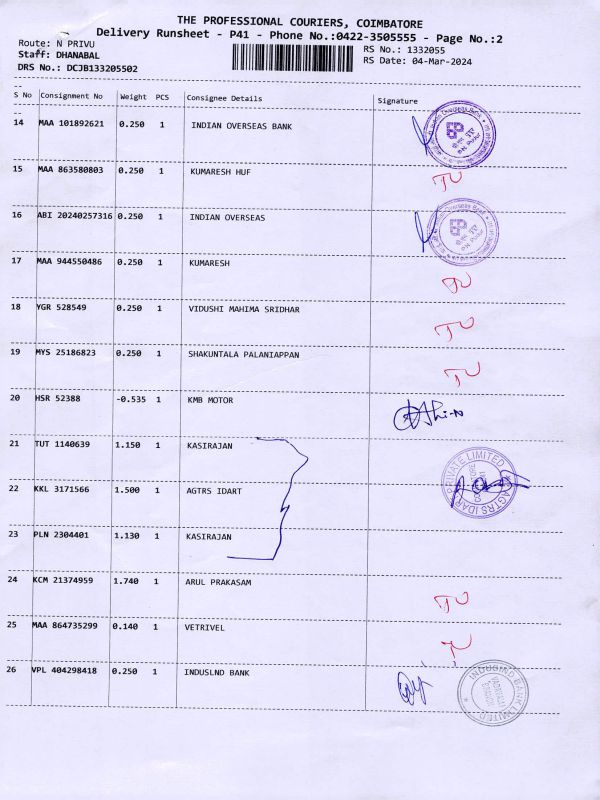 THE PROFESSIONAL COURIERS, COIMBATORE
Delivery Runsheet - P41 - Phone No.:0422-3505555 - Page No.:2
Route: N PRIVU
RS No.: 1332055
Staff: DHANABAL
RS Date: 04-Mar-2024
DRS No.: DCJB133205502
S No Consignment No Weight PCS Consignee Details Signature
14 MAA 101892621 0.250 1 INDIAN OVERSEAS BANK
15 MAA 863580803 0.250 1 KUMARESH HUF
16 ABI 20240257316 0.250 1 INDIAN OVERSEAS
17 MAA 944550486 0.250 1 KUMARESH
18 YGR 528549 0.250 1 VIDUSHI MAHIMA SRIDHAR
19 MYS 25186823 0.250 1 SHAKUNTALA PALANIAPPAN
20 HSR 52388 -0.535 1 KMB MOTOR
21 TUT 1140639 1.150 1 KASIRAJAN
PRIVATE LIMITED
22 KKL 3171566 1.500 1 AGTRS IDART
AGTRS IDART
23 PLN 2304401 1.130 1 KASIRAJAN
24 KCM 21374959 1.740 1 ARUL PRAKASAM
25 MAA 864735299 0.140 1 VETRIVEL
26 VPL 404298418 0.250 1 INDUSLND BANK
INDUSIND BANK LIMITED